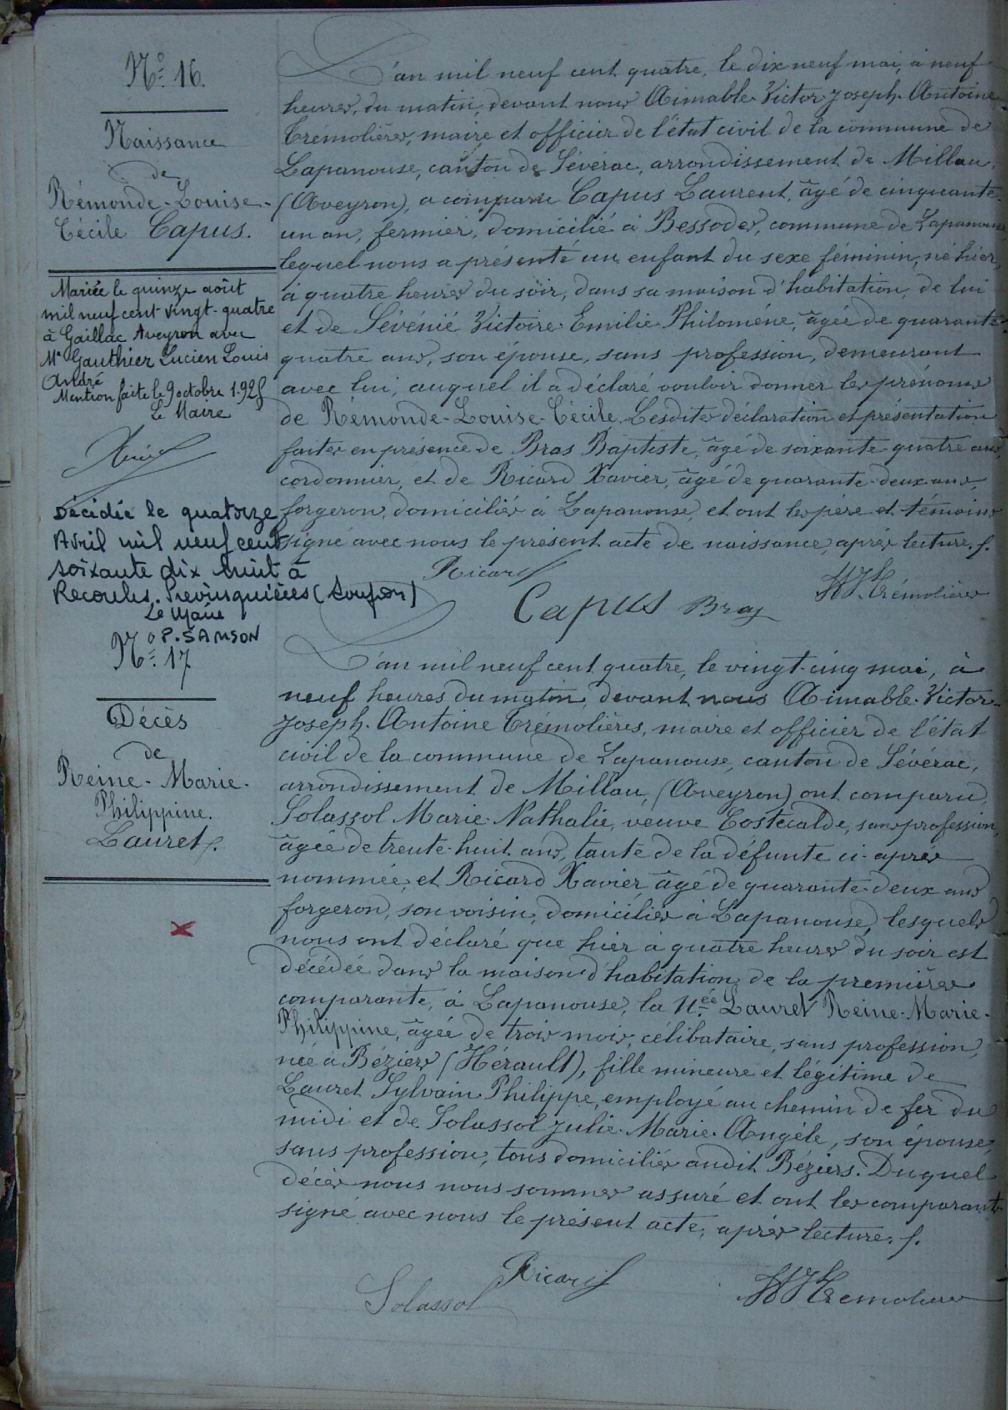 N° 16.
Naissance
de
Rémonde-Louise-
Cécile Capus.
Mariée le quinze août
mil neuf cent vingt-quatre
à Gaillac Aveyron avec
Mr Gauthier Lucien Louis
André
Mention faite le 9 octobre 192
Le Maire
Décédée le quatorze
Avril mil neuf cent
soixante dix huit à
Recoules-Prévinquières (Aveyron)
Le Maire
P. SAMSON
L'an mil neuf cent quatre, le dix neuf mai, à neuf
heures, du matin, devant nous Aimable Victor Joseph Antoine
Tremolières, maire et officier de l'état civil de la commune de
Lapanouse, canton de Sévérac, arrondissement de Millau,
(Aveyron), a comparu Capus Laurent, âgé de cinquante-
un an, fermier, domicilié à Bessodes, commune de Lapanouse
lequel nous a présenté un enfant du sexe féminin, né hier,
à quatre heures du soir, dans sa maison d'habitation, de lui
et de Sévénié Victoire Emilie Philomène, âgée de quarante-
quatre ans, son épouse, sans profession, demeurant
avec lui, auquel il a déclaré vouloir donner les prénoms
de Rémonde-Louise-Cécile. Lesdite déclaration et présentation
faites en présence de Bras Baptiste, âgé de soixante quatre ans,
cordonnier, et de Ricard Xavier, âgé de quarante-deux ans,
forgeron, domiciliés à Lapanouse, et ont les père et témoins
signé avec nous le présent acte de naissance, après lecture. f.
Ricard
Capus Bras
Trémolières
N° 17
Décès
de
Reine-Marie-
Philippine.
Lauret f.
L'an mil neuf cent quatre, le vingt-cinq mai, à
neuf heures du matin, devant nous Aimable-Victor-
Joseph-Antoine Trémolières, maire et officier de l'état
civil de la commune de Lapanouse, canton de Sévérac,
arrondissement de Millau, (Aveyron) ont comparu
Solassol Marie Nathalie, veuve Costecalde, sans profession,
âgée de trente-huit ans, tante de la défunte ci-après
nommée, et Ricard Xavier âgé de quarante-deux ans
forgeron, son voisin, domiciliés à Lapanouse, lesquels
nous ont déclaré que hier à quatre heures du soir est
décédée dans la maison d'habitation de la première
comparante, à Lapanouse, la Née Lauret Reine-Marie-
Philippine, âgée de trois mois, célibataire, sans profession,
née à Béziers (Hérault), fille mineure et légitime de
Lauret Sylvain Philippe, employé au chemin de fer du
midi et de Solassol Julie-Marie-Angèle, son épouse,
sans profession, tous domiciliés audit Béziers. Duquel
décès nous nous sommes assuré et ont les comparants
signé avec nous le présent acte, après lecture. f.
Ricard
Solassol
Tremolières